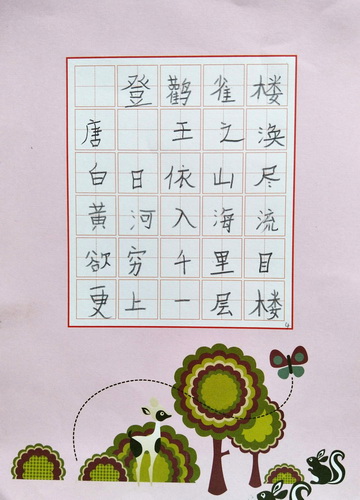 登鹳雀楼
唐 王之涣
白日依山尽
黄河入海流
欲穷千里目
更上一层楼